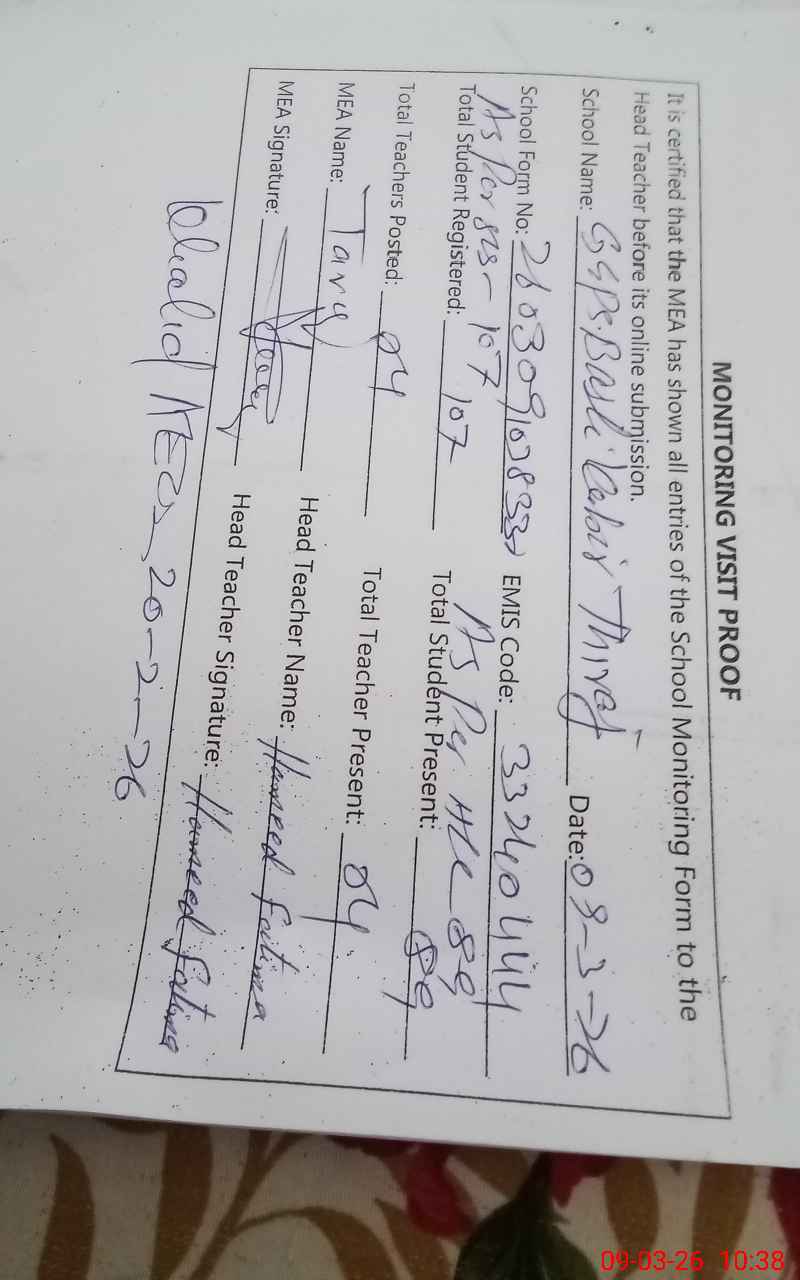 MONITORING VISIT PROOF
It is certified that the MEA has shown all entries of the School Monitoring Form to the
Head Teacher before its online submission.
School Name: GGPS. Basti Kabir Thiraj Date: 09-3-26
School Form No: EMIS Code: 33240444
As Per SIS - 107 As Per HC 89
Total Student Registered: 107 Total Student Present: 89
Total Teachers Posted: 04 Total Teacher Present: 04
MEA Name: Tariq Head Teacher Name: Hameed Fatima
MEA Signature: Head Teacher Signature: Hameed Fatima
Khalid AEO 20-2-26
09-03-26 10:38